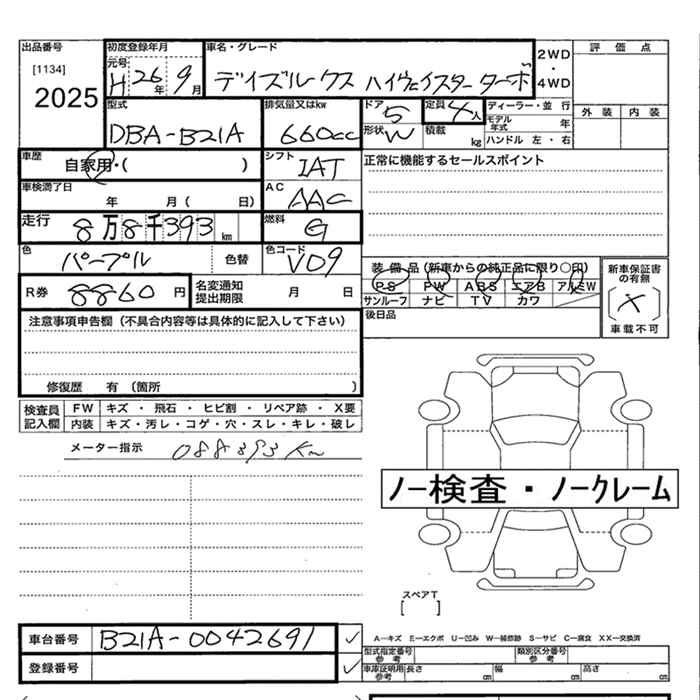 出品番号 初度登録年月 車名・グレード 2WD・4WD 評価点
[1134] 元号
2025 H 26年 9月 デイズルークス ハイウェイスターターボ
型式 排気量又はkw ドア 定員 ディーラー・並行 外装 内装
DBA-B21A 660cc 5 4人 モデル年式 年
形状 W 積載 kg ハンドル 左・右
車歴 自家用・( ) シフト IAT 正常に機能するセールスポイント
車検満了日 年 月( 日) AC AAC
走行 8万8千393km 燃料 G
色 パープル 色替 色コード V09 装備品(新車からの純正品に限り○印) 新車保証書の有無
PS PW ABS エアB アルミW
R券 8860円 名変通知提出期限 月 日 サンルーフ ナビ TV カワ ( × )
後日品 車載不可
注意事項申告欄(不具合内容等は具体的に記入して下さい)
修復歴 有 (箇所 )
検査員記入欄 FW キズ・飛石・ヒビ割・リペア跡・X要
内装 キズ・汚レ・コゲ・穴・スレ・キレ・破レ
メーター指示 088393Km
ノー検査・ノークレーム
スペアT
[ ]
車台番号 B21A-0042691 A―キズ E―エクボ U―凹み W―補修跡 S―サビ C―腐食 XX―交換済
型式指定番号 参考 類別区分番号 参考
登録番号 車庫証明用 参考 長さ cm 幅 cm 高さ cm